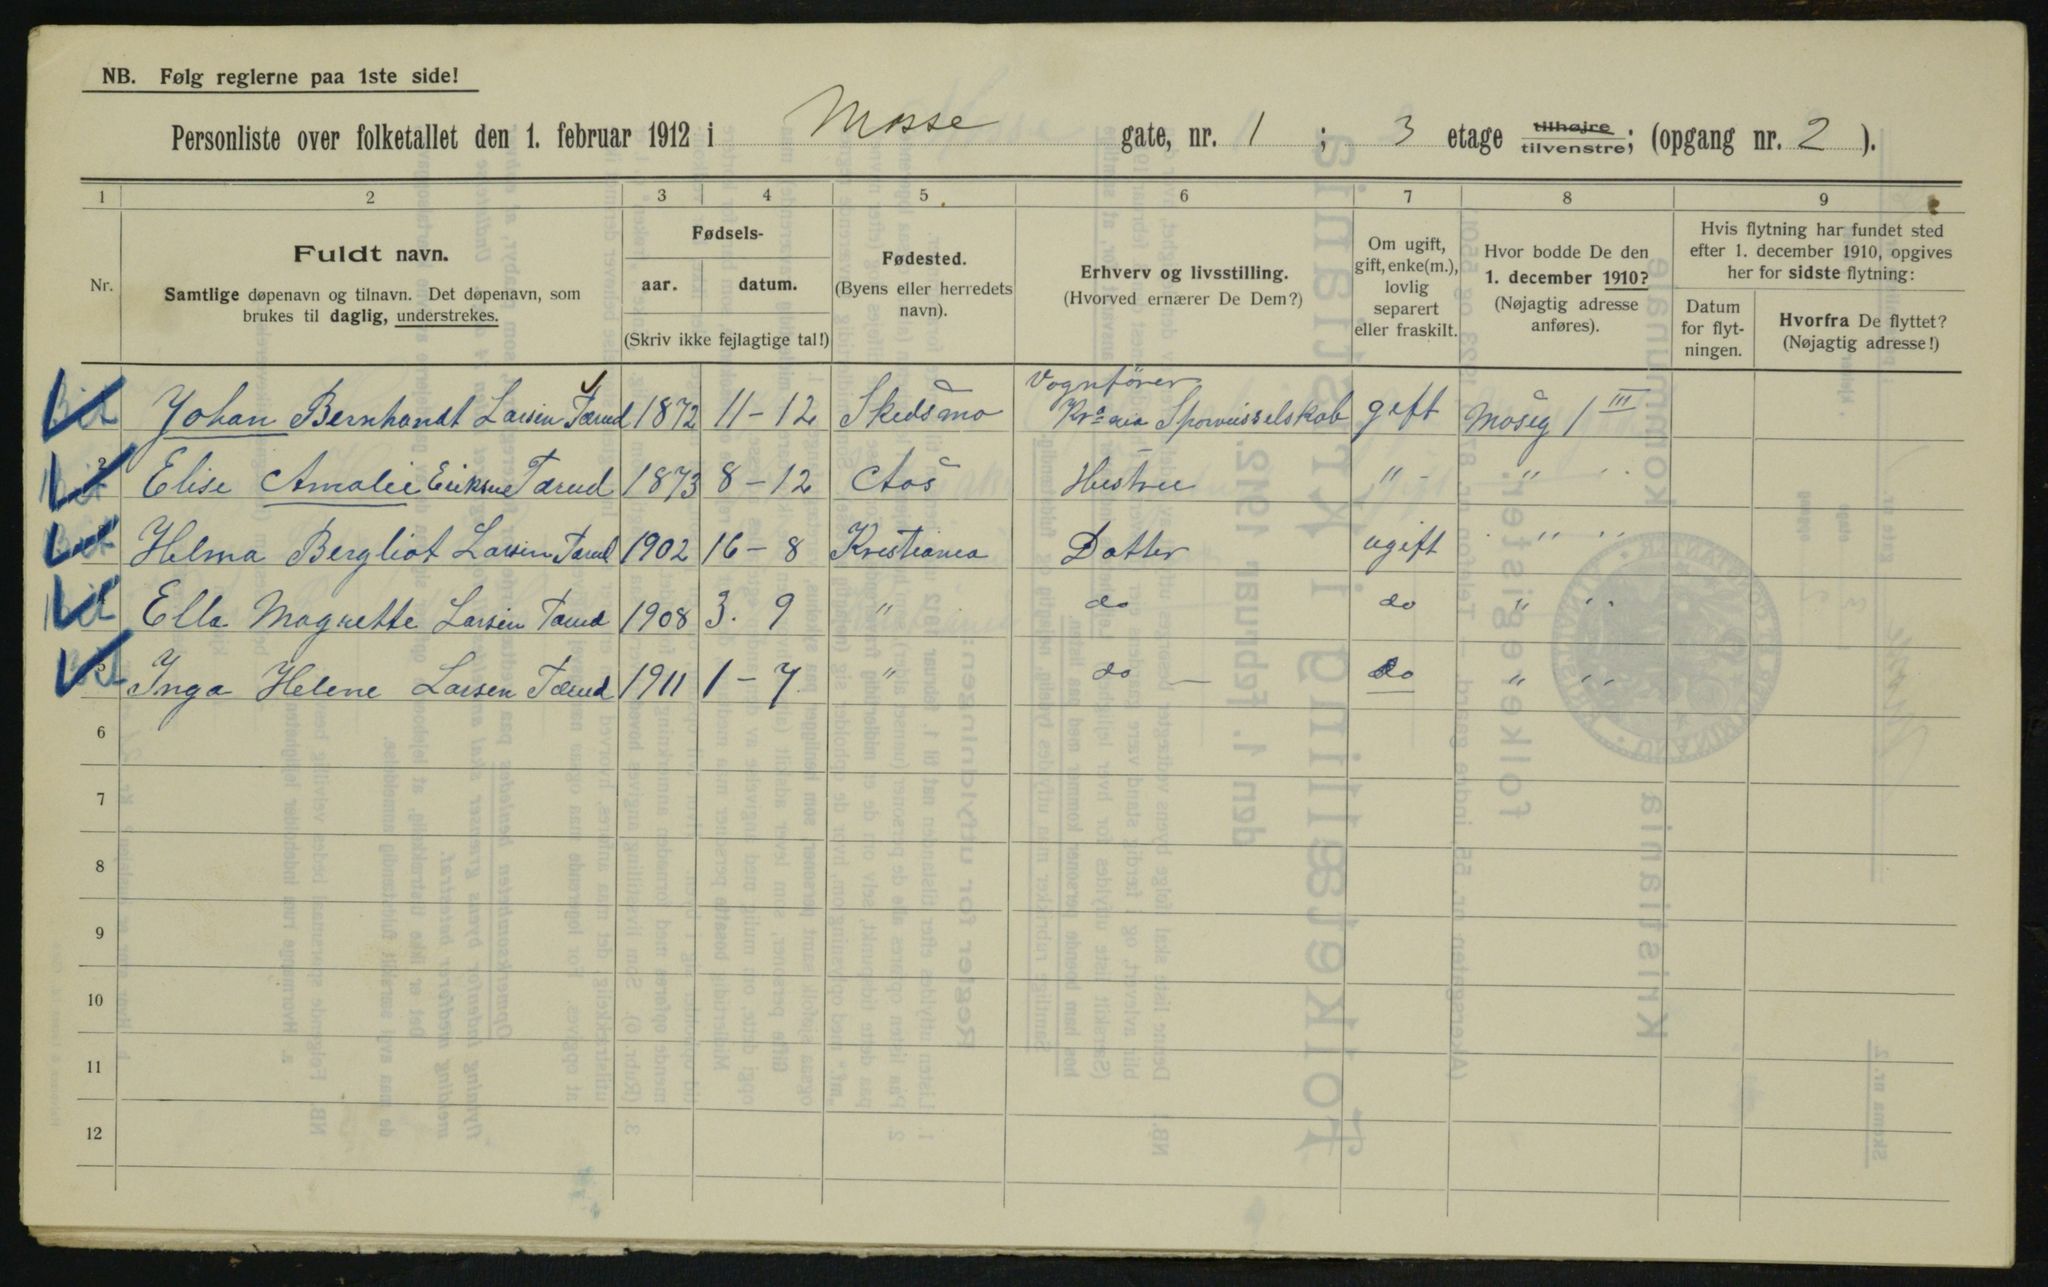 NB. Følg reglerne paa 1ste side!
Personliste over folketallet den 1. februar 1912 i Mosse gate, nr. 1 ; 3 etage tilhøjre tilvenstre; (opgang nr. 2 ).
1 2 3 4 5 6 7 8 9
Nr.
Fuldt navn.
Samtlige døpenavn og tilnavn. Det døpenavn, som
brukes til daglig, understrekes.
Fødsels-
aar. datum.
(Skriv ikke fejlagtige tal!)
Fødested.
(Byens eller herredets
navn).
Erhverv og livsstilling.
(Hvorved ernærer De Dem?)
Om ugift,
gift, enke(m.),
lovlig
separert
eller fraskilt.
Hvor bodde De den
1. december 1910?
(Nøjagtig adresse
anføres).
Hvis flytning har fundet sted
efter 1. december 1910, opgives
her for sidste flytning:
Datum
for flyt-
ningen.
Hvorfra De flyttet?
(Nøjagtig adresse!)
Vognfører
Johan Bernhardt Larsen Tærud 1872 11-12 Skedsmo Kr.a Sporveisselskab gift Mosseg 1 III
Elise Amalie Eriksen Tærud 1873 8-12 Aas Hustru " - " "
Helma Bergliot Larsen Tærud 1902 16-8 Kristiania Datter ugift " "
Ella Magrette Larsen Tærud 1908 3. 9 " do do " "
Inga Helene Larsen Tærud 1911 1-7 " do — do " "
6
7
8
9
10
11
12